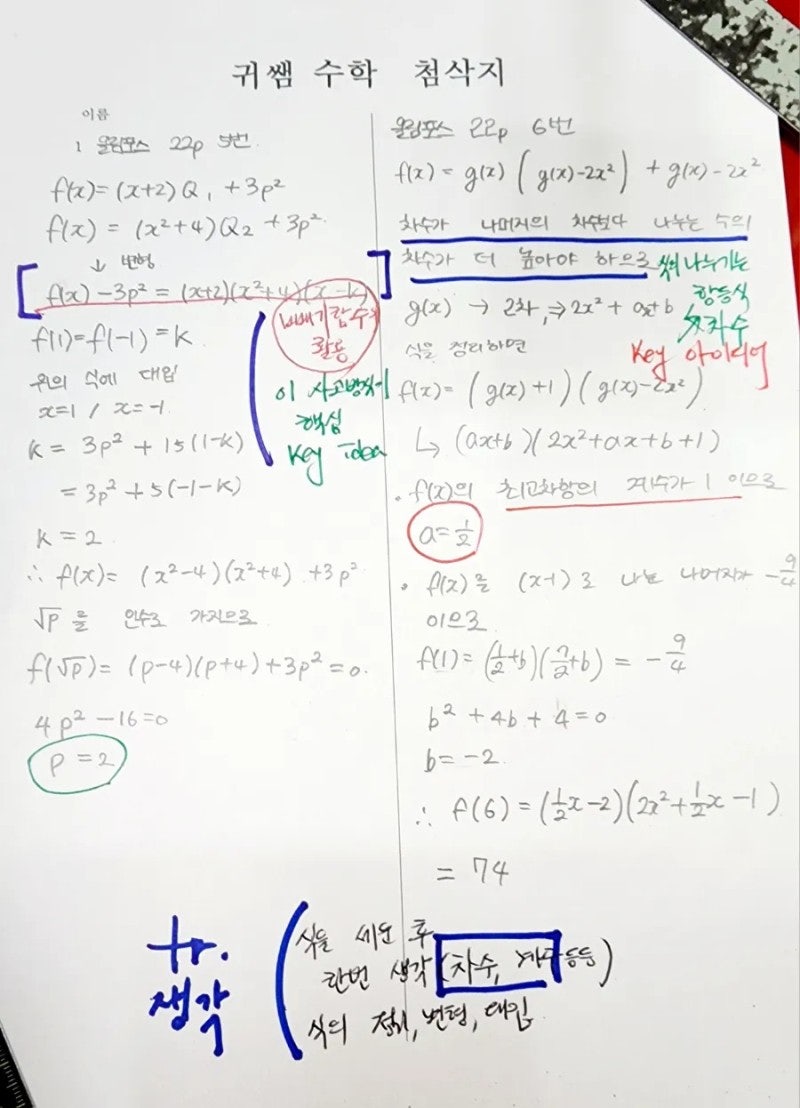 귀쌤 수학 첨삭지
이름
1 올림포스 22p 5번
f(x)=(x+2)Q₁+3p²
f(x) = (x²+4)Q₂+3p²
↓ 변형
f(x)-3p² = (x+2)(x²+4)(x-k)
f(1)=f(-1)=k
위의 식에 대입
x=1 / x=-1
k = 3p² + 15(1-k)
= 3p²+5(-1-k)
k = 2
∴ f(x)= (x²-4)(x²+4)+3p²
√p를 인수로 가지므로
f(√p) = (p-4)(p+4)+3p²=0.
4p²-16=0
p=2
활용
이 사고방식이
핵심
key idea
올림포스 22p 6번
f(x) = g(x)(g(x)-2x²) + g(x)-2x²
차수가 나머지의 차수보다 나누는 수의
차수가 더 높아야 하므로
식의 나누기는
항등식
차수
key 아이디어
g(x) → 2차, ⇒ 2x²+ax+b
식을 정리하면
f(x)= (g(x)+1)(g(x)-2x²)
↳ (ax+b)(2x²+ax+b+1)
• f(x)의 최고차항의 계수가 1 이므로
a=½
• f(x)를 (x-1)로 나눈 나머지가 -9/4
이므로
f(1) = (½+b)(7/2+b) = -9/4
b²+4b+4=0
b=-2
∴ f(6) = (½x-2)(2x²+½x-1)
= 74
tr.
생각
식을 세운 후
한번 생각 (차수, 계수 등등)
식의 정리, 변형, 대입